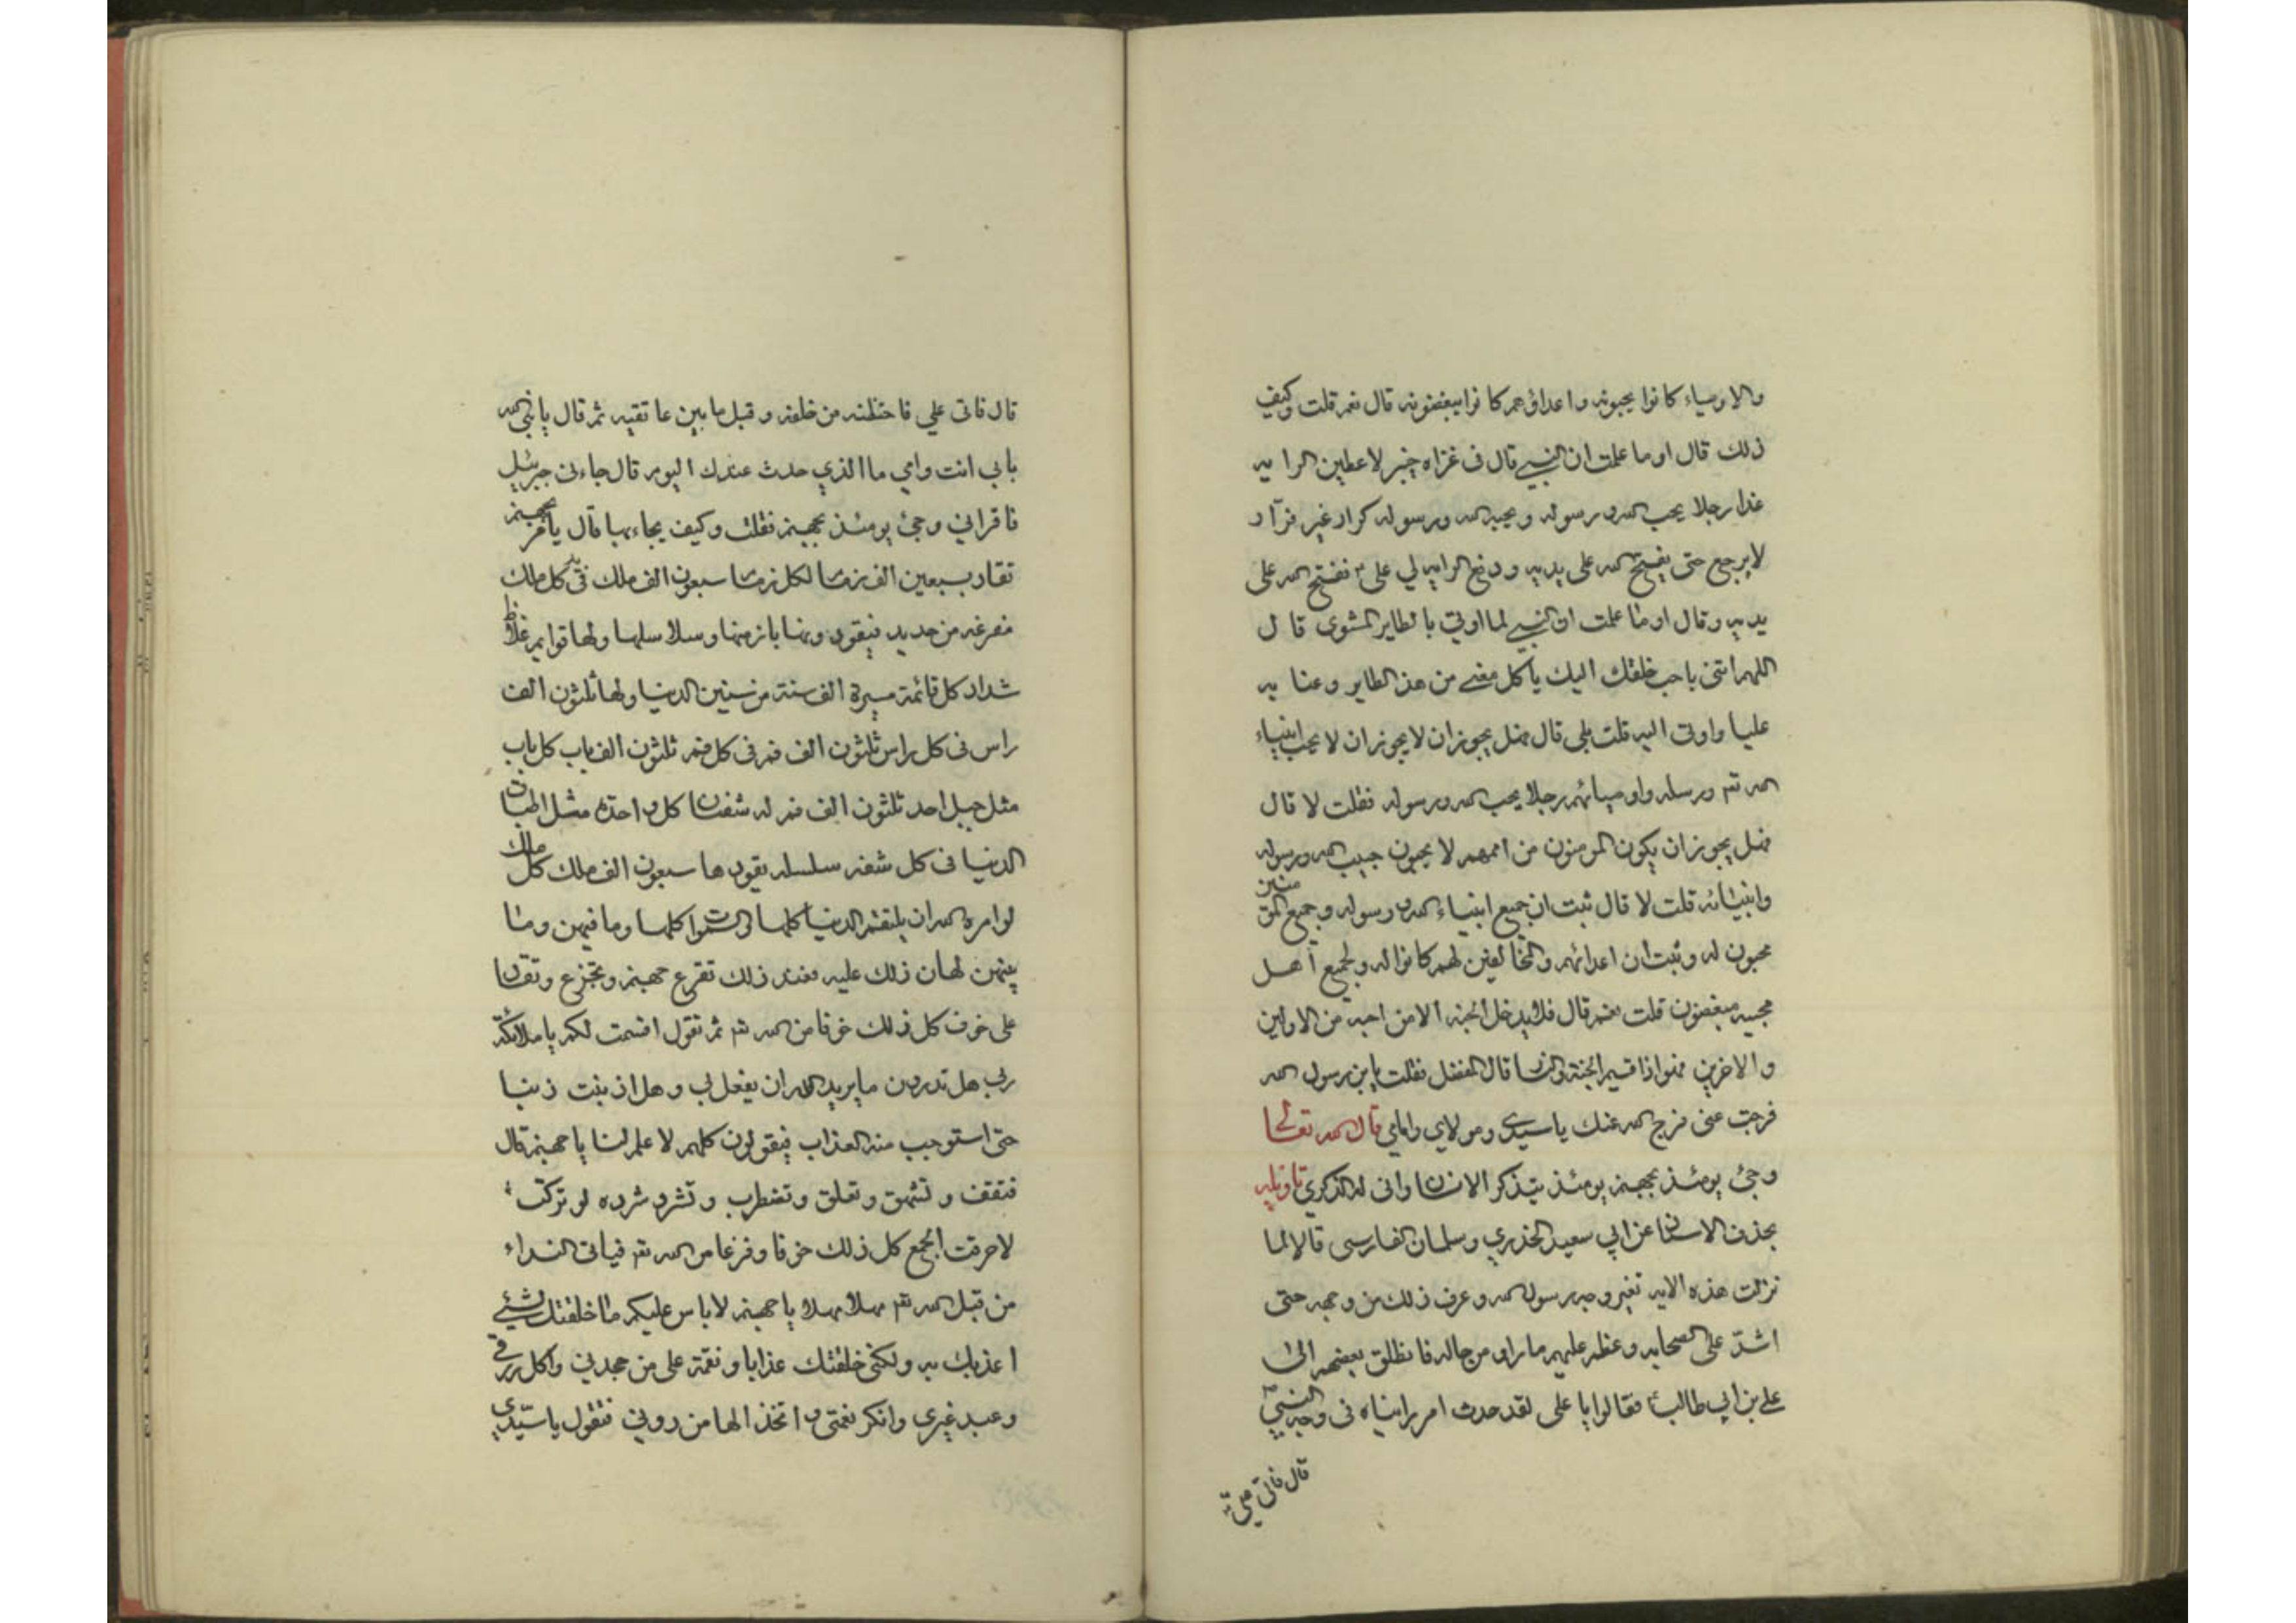 والاوصياء كانوا يحبونه واعداؤهم كانوا يبغضونه قال نعم قلت وكيف
ذلك قال اوما علمت ان النبي قال في غزاه خيبر لاعطين الرايه
غدا رجلا يحب الله ورسوله ويحبه الله ورسوله كرار غير فرار
لا يرجع حتى يفتح الله على يديه ودفع الرايه لي علي ففتح الله على
يديه وقال اوما علمت ان النبي لما اوتي بالطاير المشوي قال
اللهم ائتني باحب خلقك اليك ياكل معي من هذ الطاير وعنا به
عليا واوتى اليه قلت بلى قال فهل يجوز ان لا يجوز ان لا يحب انبياء
الله تع ورسله واوصيائهم رجلا يحب الله ورسوله فقلت لا قال
فهل يجوز ان يكون المومنون من اممهم لا يحبون حبيب الله ورسوله
وانبيائه قلت لا قال ثبت ان جميع انبياء الله ورسوله وجميع المؤمنين
محبون له وثبت ان اعدائهم والمخالفين لهم كانوا له ولجميع اهل
محبيه مبغضون قلت نعم قال فلا يدخل الجنه الا من احبه من الاولين
والاخرين فهو اذا قسيم الجنة والنار قال المفضل فقلت يابن رسول الله
فرجت عني فرج الله عنك ياسيدي ومولاي وامامي قال الله تعالى
وجئ يومئذ بجهنم يومئذ يتذكر الانسان وانى له الذكري تاويله
بحذف الاسناد عن ابي سعيد الخذري وسلمان الفارسي قالا لما
نزلت هذه الايه تغير وجه رسول الله وعرف ذلك من وجهه حتى
اشتد على الصحابه وعظم عليهم ما راى من حاله فانطلق بعضهم الى
علي بن ابي طالب فقالوا يا علي لقد حدث امر رايناه في وجه النبي
قال فاتى علي
قال فاتى علي فاحتظنه من خلفه وقبل ما بين عاتقيه ثم قال يا نبي الله
بابي انت وامي ما الذي حدث عندك اليوم قال جاءني جبرئيل
فاقراني وجئ يومئذ بجهنم فقلت وكيف يجاء بها قال يامر بجهنم
تقاد بسبعين الف زمام لكل زمام سبعون الف ملك في يد كل ملك
مقرعه من حديد فيقودونها بازمتها وسلاسلها ولها قوايم غلاظ
شداد كل قائمة مسيرة الف سنة من سنين الدنيا ولها ثلثون الف
راس في كل راس ثلثون الف فم في كل فم ثلثون الف ناب كل ناب
مثل جبل احد ثلثون الف فم له شفتان كل واحدة مثل اطباق
الدنيا في كل شفه سلسله يقودها سبعون الف ملك كل ملك
لو امره الله ان يلتقم الدنيا كلها والسموات كلها وما فيهن وما
بينهن لهان ذلك عليه فعند ذلك تفزع جهنم وتجزع وتقاد
على خوف كل ذلك خوفا من الله تع ثم تقول اقسمت لكم يا ملائكة
ربي هل تدرون ما يريد الله ان يفعل بي وهل اذنبت ذنبا
حتى استوجب منه العذاب فيقولون كلهم لا علم لنا يا جهنم قال
فتقف وتشهق وتعلق وتضطرب وتشرد شرده لو تركت
لاحرقت الجمع كل ذلك خوفا وفزعا من الله تع فياتى النداء
من قبل الله تع مهلا مهلا يا جهنم لا باس عليكم ما خلقتك لشئ
اعذبك به ولكني خلقتك عذابا ونقمة على من جحدني واكل رزقي
وعبد غيري وانكر نعمتي واتخذ الها من دوني فتقول يا سيدي